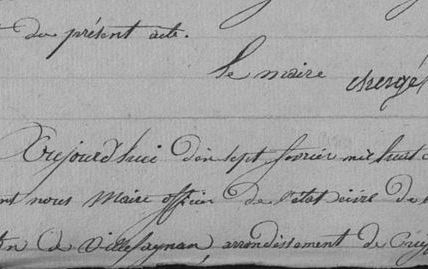 du présent acte.
le maire chergé
Aujourd'hui dix sept février mil huit
nous Maire officier de l'état civil de
de Villefagnan, arrondissement de Ruff